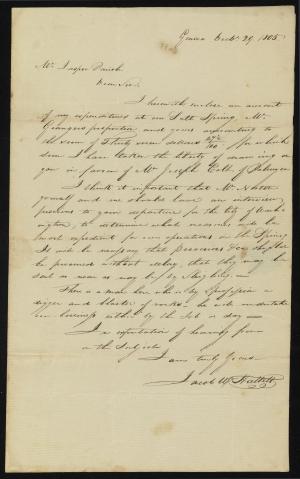 Geneva Octr 29, 1805
Mr. Jasper Parish
Dear Sir.
I herewith enclose an account
of my expenditures at our Salt Spring, Mr
Grangers proportion and yours amounting to
the sum of Thirty seven dollars /100 for which
sum I have taken the liberty of drawing on
you in favor of Mr Joseph Colt of Palmyra
I think it important that Mr
yourself and me should have an interview
previous to your departure for the City of Wash-
ington, to determine what measures will be
most expedient for our operations at the Spring
It will be necessary that
be procured without delay, that they may be
as near as may be by
There is a man here who is by profession a
digger and blaster of rocks he will undertake
our business either by the Job or day —
In expectation of hearing from
on the Subject
I am truly Yours
Jacob W. Hallett